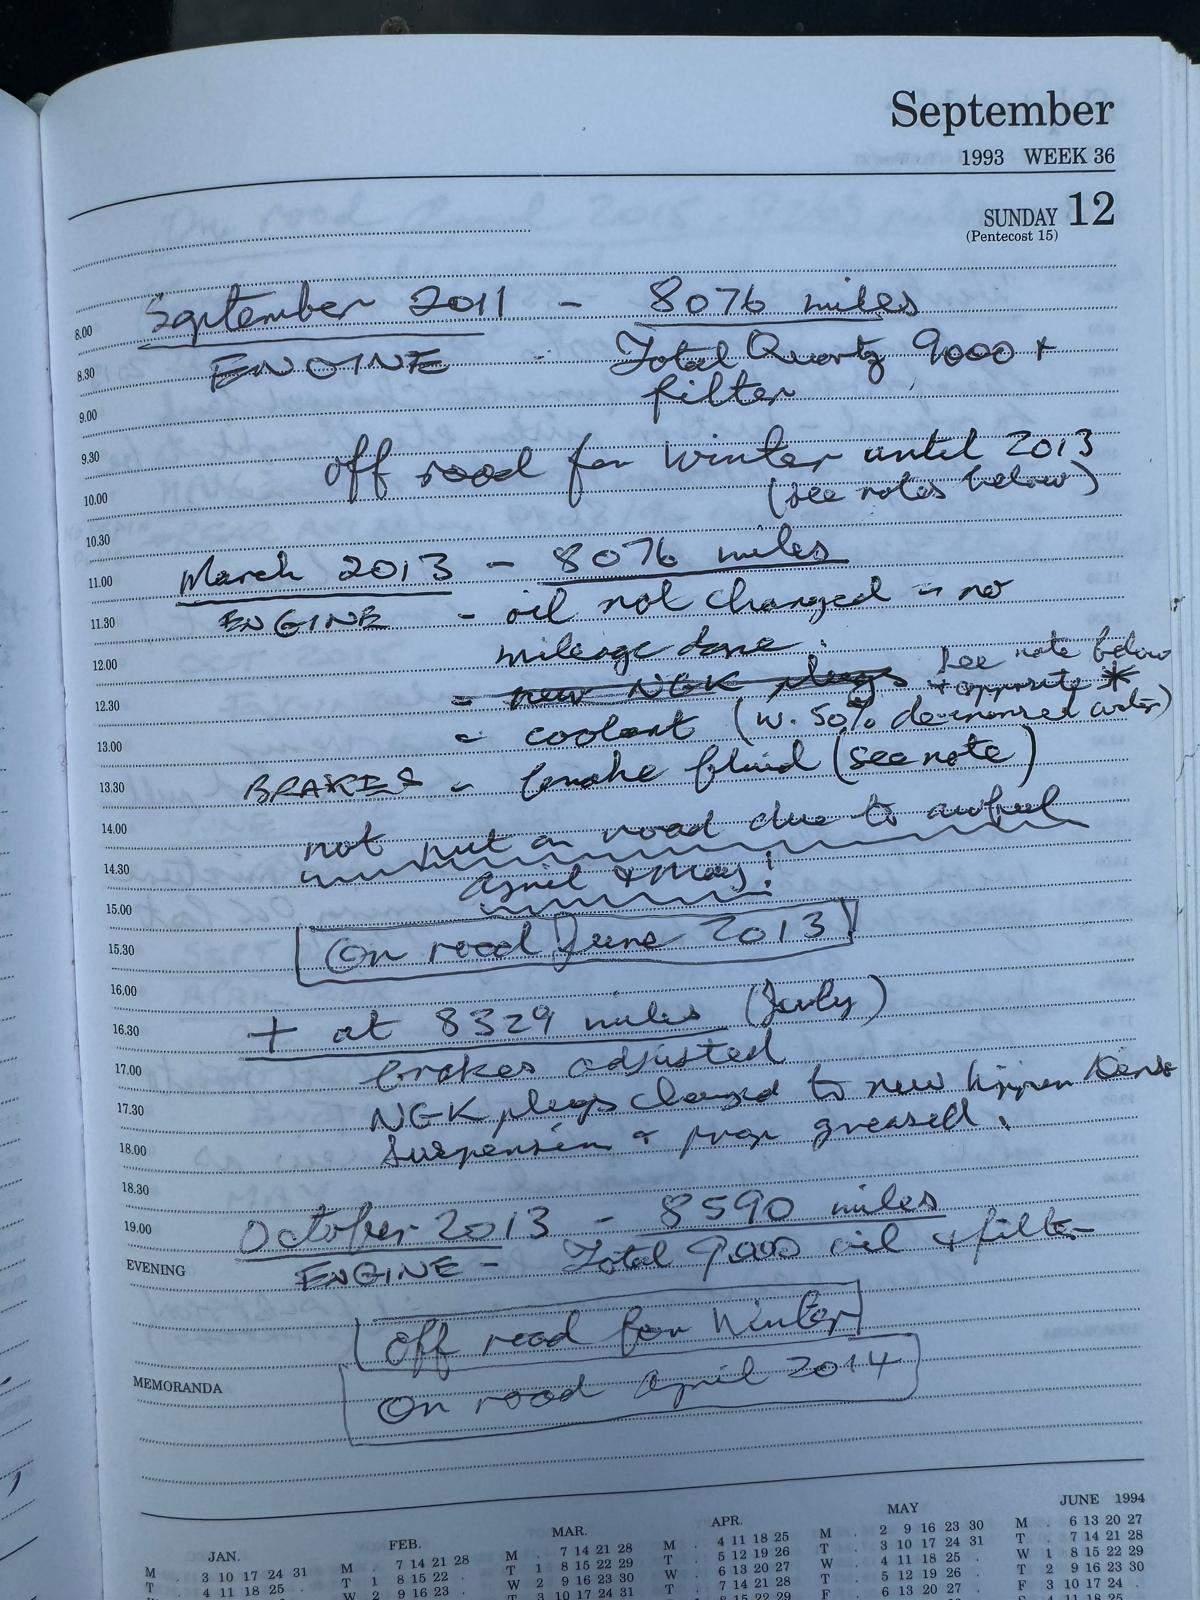 September
1993 WEEK 36
SUNDAY 12
(Pentecost 15)
September 2011 - 8076 miles
8.00
ENGINE - Total Quartz 9000 +
8.30
filter
9.00
off road for Winter until 2013
9.30
(see notes below)
10.00
10.30
March 2013 - 8076 miles
11.00
ENGINE - oil not changed - no
11.30
mileage done.
12.00
see note below
- new NGK plugs + opposite *
12.30
- coolant (w. 50% deionised water)
13.00
BRAKES - brake fluid (see note)
13.30
not put on road due to awful
14.00
April & May!
14.30
15.00
On road June 2013
15.30
16.00
+ at 8329 miles (July)
16.30
brakes adjusted
17.00
NGK plugs changed to new Nippon Denso
17.30
Suspension & prop greased.
18.00
18.30
October 2013 - 8590 miles
19.00
ENGINE - Total 9000 oil & filter
EVENING
Off road for Winter
On road April 2014
MEMORANDA
JAN. FEB. MAR. APR. MAY JUNE 1994
M . 3 10 17 24 31 M . 7 14 21 28 M . 7 14 21 28 M . 4 11 18 25 M . 2 9 16 23 30 M . 6 13 20 27
T . 4 11 18 25 . T 1 8 15 22 . T 1 8 15 22 29 T . 5 12 19 26 T . 3 10 17 24 31 T . 7 14 21 28
W 2 9 16 23 . W 2 9 16 23 30 W . 6 13 20 27 W . 4 11 18 25 . W 1 8 15 22 29
T 3 10 17 24 31 T . 7 14 21 28 T . 5 12 19 26 . T 2 9 16 23 30
F . 6 13 20 27 . F 3 10 17 24 .